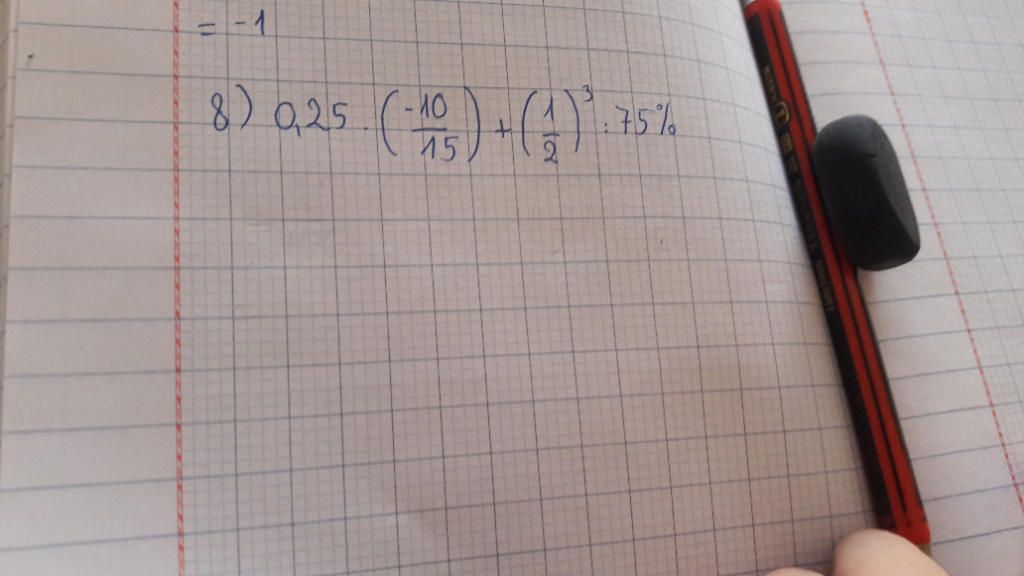 = -1
8) 0,25 · (-10/15) + (1/2)³ : 75%